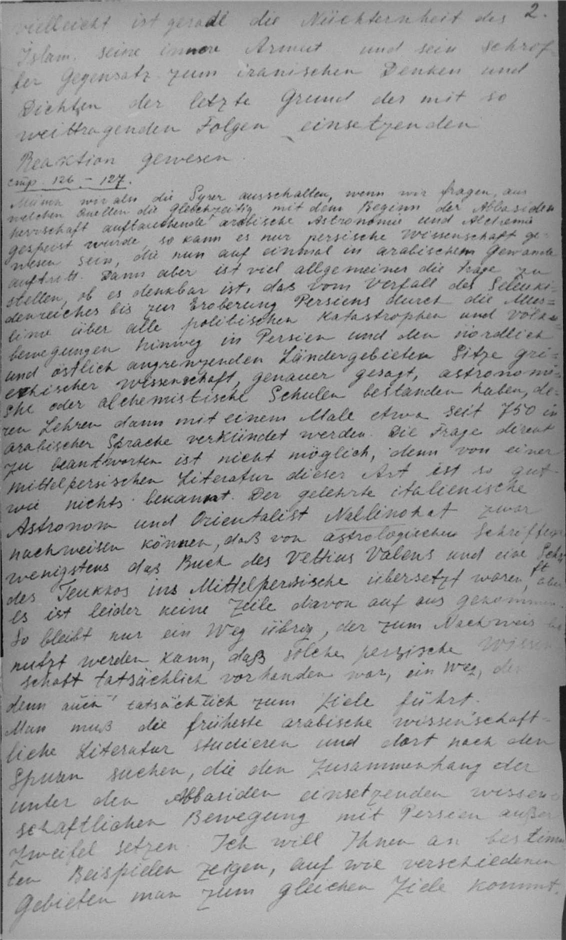 2.
vielleicht ist gerade die Nüchternheit des
Islam, seine innere Armut und sein schrof-
fer Gegensatz zum iranischen Denken und
Dichten der letzte Grund der mit so
weittragenden Folgen einsetzenden
Reaktion gewesen.
стр. 126 – 127.
Müssen wir also die Syrer ausschalten, wenn wir fragen, aus
welchen Quellen die gleichzeitig mit dem Beginn der Abbasiden
herrschaft auftauchende arabische Astronomie und Alchemie
gespeist wurde, so kann es nur persische Wissenschaft ge-
wesen sein, die nun auf einmal in arabischem Gewande
auftritt. Dann aber ist viel allgemeiner die Frage zu
stellen, ob es denkbar ist, das vom Verfall des Seleuki-
denreiches bis zur Eroberung Persiens durch die Mus-
lime über alle politischen Katastrophen und Völker-
bewegungen hinweg in Persien und den nördlich
und östlich angrenzenden Ländergebieten Sitze gri-
echischer Wissenschaft, genauer gesagt, astronomi-
sche oder alchemistische Schulen bestanden haben, de-
ren Lehren dann mit einem Male etwa seit 750 in
arabischer Sprache verkündet werden. Die Frage direkt
zu beantworten ist nicht möglich, denn von einer
mittelpersischen Literatur dieser Art ist so gut
wie nichts bekannt. Der gelehrte italienische
Astronom und Orientalist Nallino hat zwar
nachweisen können, daß von astrologischen Schriften
wenigstens das Buch des Vettius Valens und eine Schrift
des Teukros ins Mittelpersische übersetzt waren, aber
es ist leider keine Zeile davon auf uns gekommen.
So bleibt nur ein Weg übrig, der zum Nachweis be-
nutzt werden kann, daß solche persische Wissen-
schaft tatsächlich vorhanden war, ein Weg, der
denn auch tatsächlich zum Ziele führt.
Man muß die früheste arabische wissenschaft-
liche Literatur studieren und dort nach den
Spuren suchen, die den Zusammenhang der
unter den Abbasiden einsetzenden wissen-
schaftlichen Bewegung mit Persien außer
Zweifel setzen. Ich will Ihnen an bestimm-
ten Beispielen zeigen, auf wie verschiedenen
Gebieten man zum gleichen Ziele kommt.